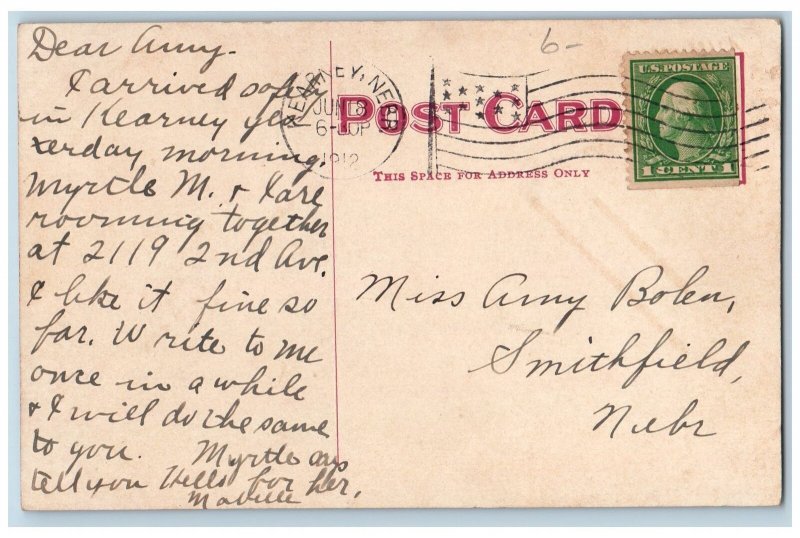 Dear Amy.
I arrived safely
in Kearney yes
terday morning.
Myrtle M. & I are
rooming together
at 2119 2nd Ave.
I like it fine so
far. Write to me
once in a while
& I will do the same
to you. Myrtle says
tell you Hello for her.
KEARNEY, NEBR
JUN 8
6-30P
1912
POST CARD
THIS SPACE FOR ADDRESS ONLY
6-
U.S. POSTAGE
1 CENT 1
Miss Amy Bolen,
Smithfield,
Nebr